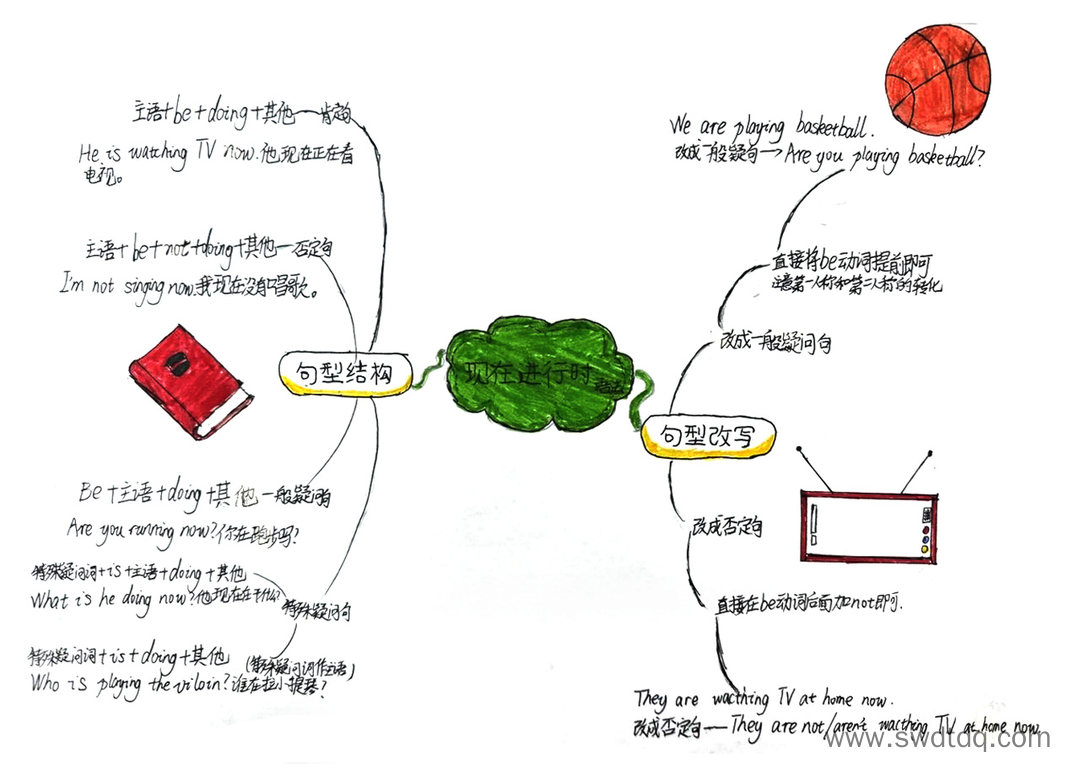 现在进行时
句型结构
主语+be+doing+其他—肯定句
He is watching TV now.他现在正在看
电视。
主语+be+not+doing+其他—否定句
I'm not singing now.我现在没有唱歌。
Be+主语+doing+其他—一般疑问句
Are you running now?你在跑步吗?
特殊疑问句
特殊疑问词+is+主语+doing+其他
What is he doing now?他现在在干什么?
特殊疑问词+is+doing+其他
(特殊疑问词作主语)
Who is playing the viloin?谁在拉小提琴?
句型改写
改成一般疑问句
直接将be动词提前即可
注意第一人称和第二人称的转化
We are playing basketball.
改成一般疑句→Are you playing basketball?
改成否定句
直接在be动词后面加not即可.
They are wacthing TV at home now.
改成否定句—They are not/aren't wacthing TV at home now.
www.swdtdq.com